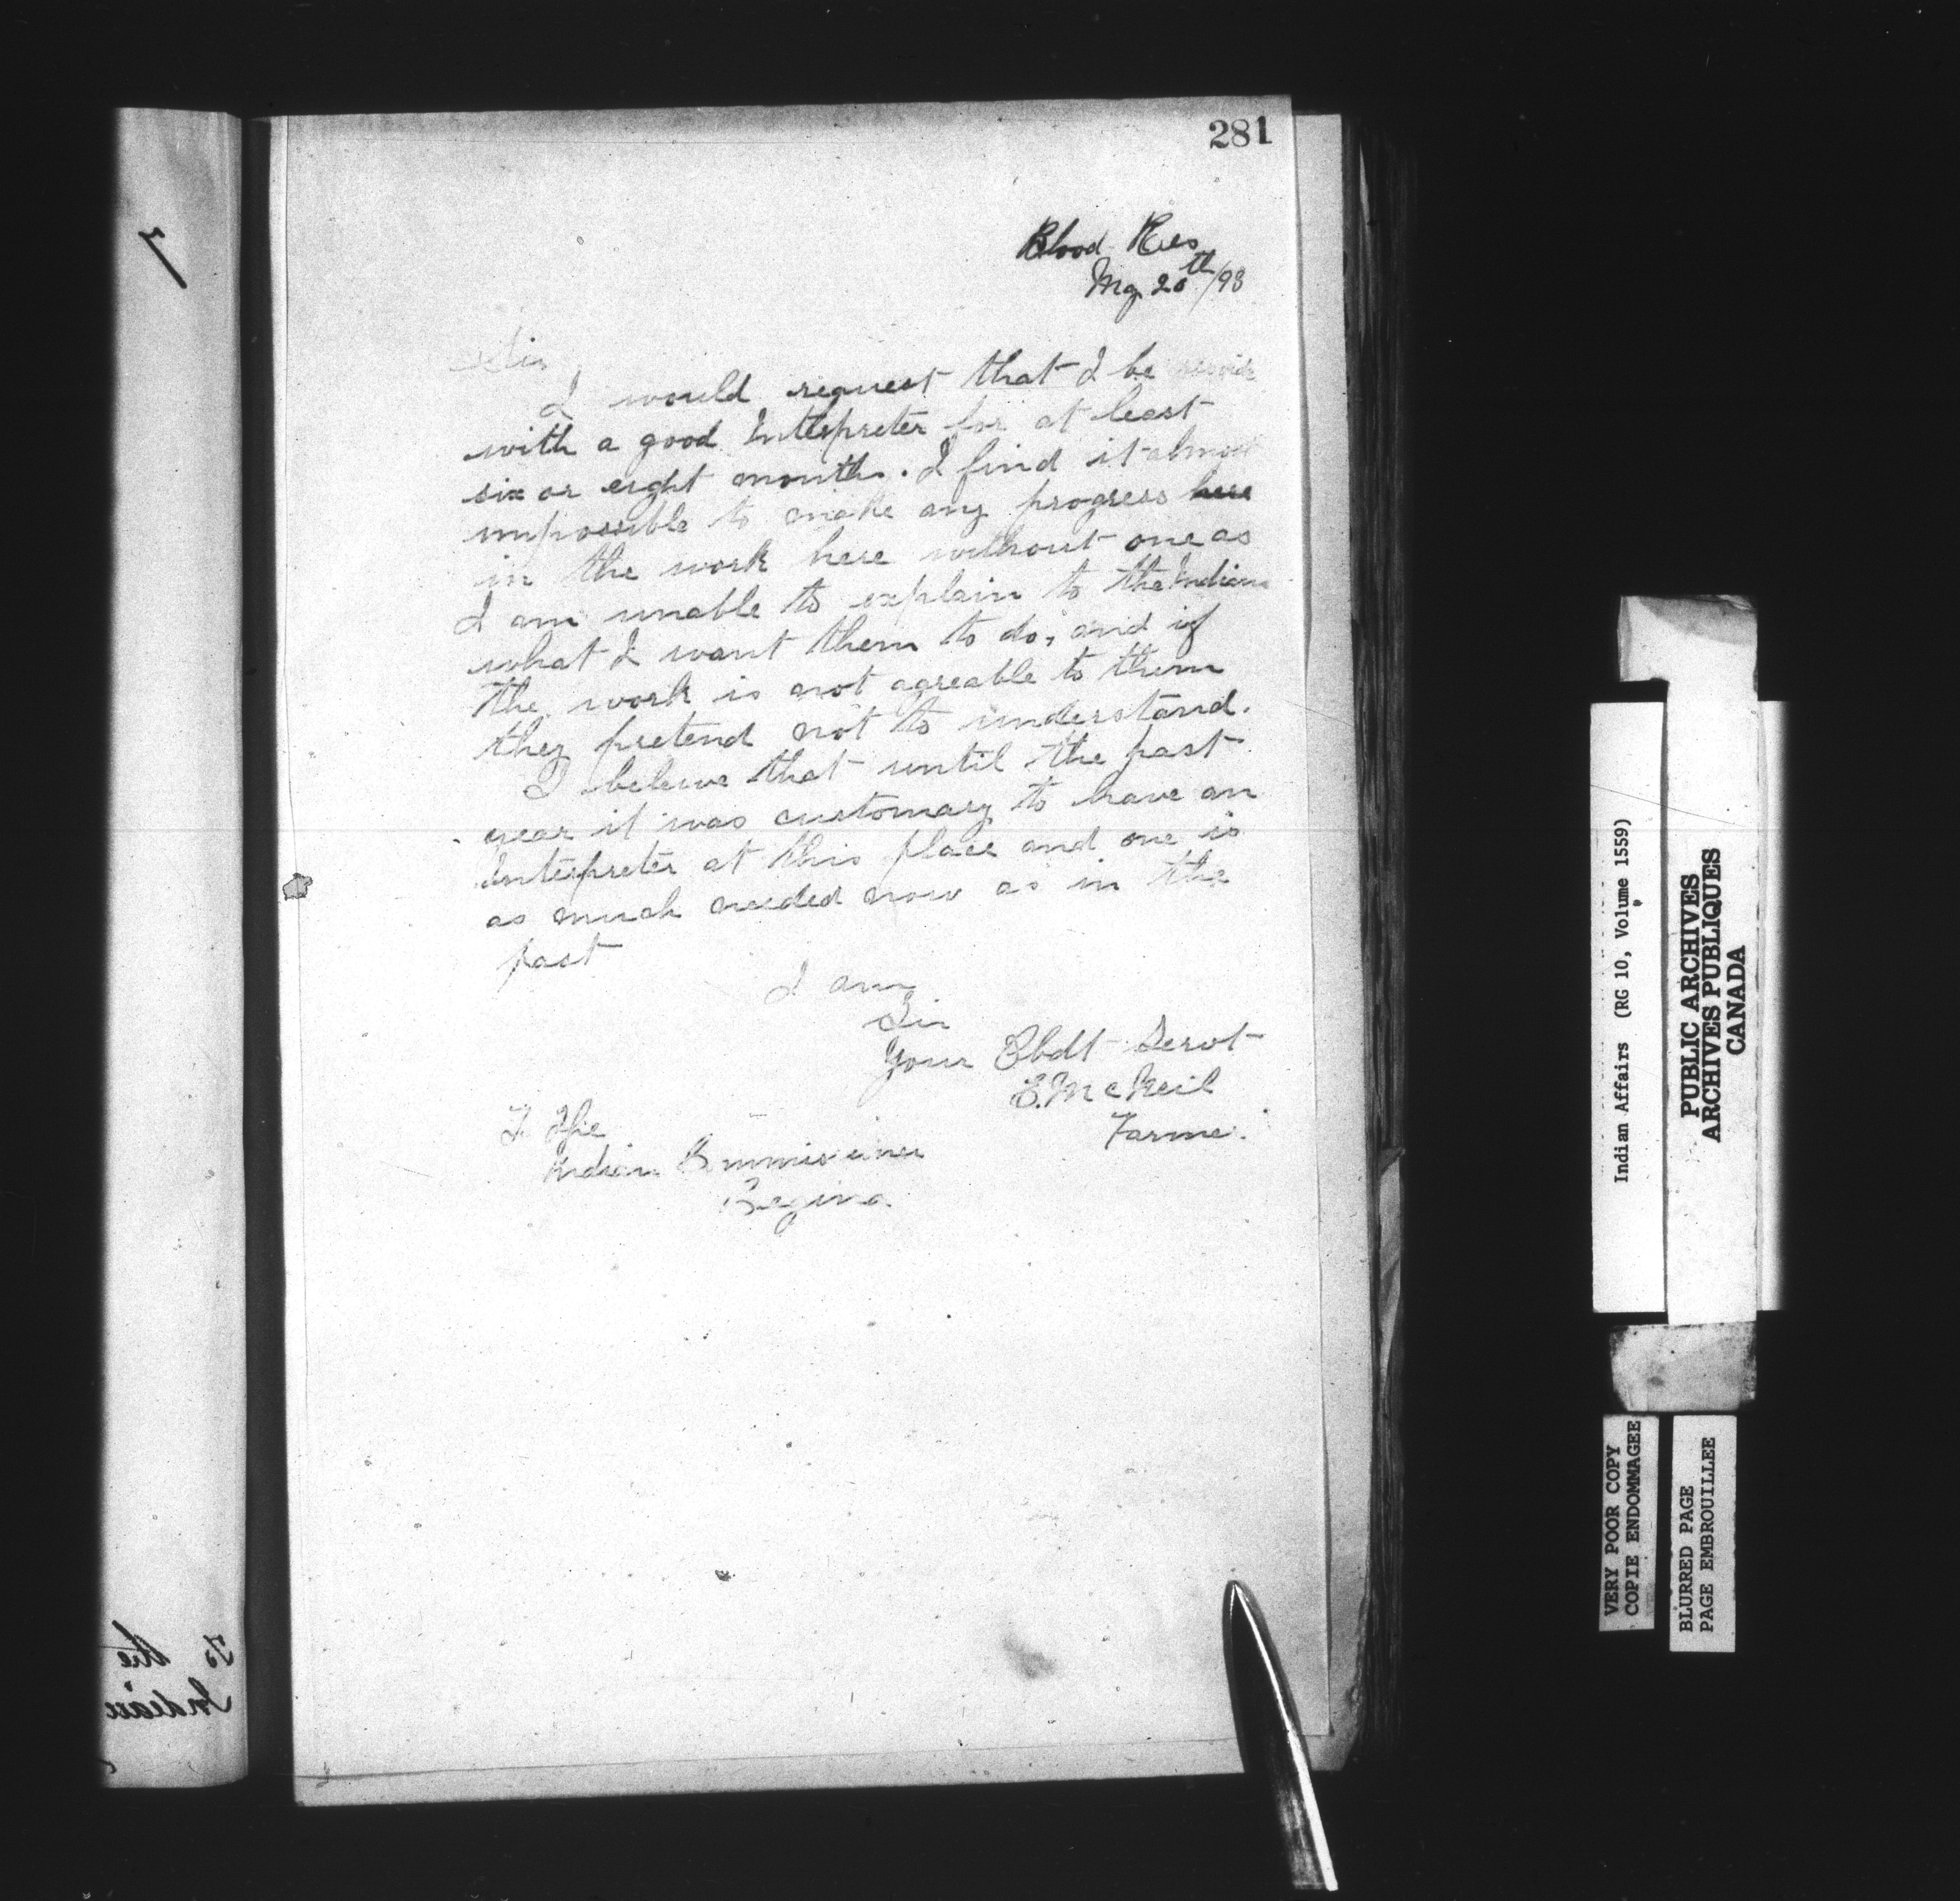 281
Blood Res
My 20th/93
Sir
I would request that I be
with a good Interpreter for at least
six or eight months. I find it almost
impossible to make any progress here
in the work here without one as
I am unable to explain to the Indians
what I want them to do, and if
the work is not agreable to them
they pretend not to understand.
I beleive that until the past
year it was customary to have an
Interpreter at this place and one is
as much needed now as in the
past
I am
Sir
Your Obdt Servt
E. McNeil
Farmer
To The
Indian Commissioner
Regina.
To the
Indian
Indian Affairs (RG 10, Volume 1559)
PUBLIC ARCHIVES
ARCHIVES PUBLIQUES
CANADA
VERY POOR COPY
COPIE ENDOMMAGEE
BLURRED PAGE
PAGE EMBROUILLEE